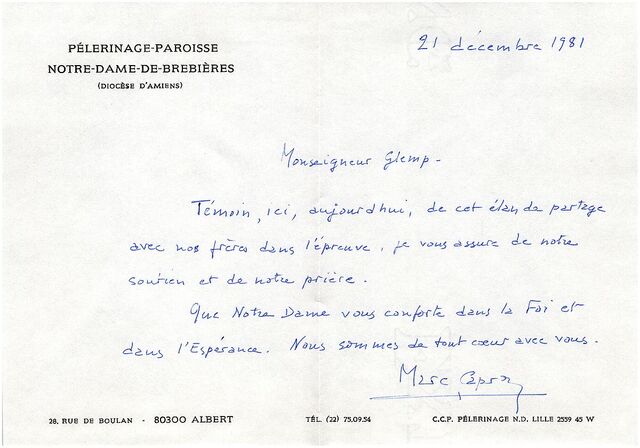 PÉLERINAGE-PAROISSE
NOTRE-DAME-DE-BREBIÈRES
(DIOCÈSE D'AMIENS)
21 décembre 1981
Monseigneur Glemp -
Témoin, ici, aujourd'hui, de cet élan de partage
avec nos frères dans l'épreuve, je vous assure de notre
soutien et de notre prière.
Que Notre Dame vous conforte dans la Foi et
dans l'Espérance. Nous sommes de tout cœur avec vous.
Marc
28, RUE DE BOULAN - 80300 ALBERT
TÉL. (22) 75.09.54
C.C.P. PÉLERINAGE N.D. LILLE 2559 45 W